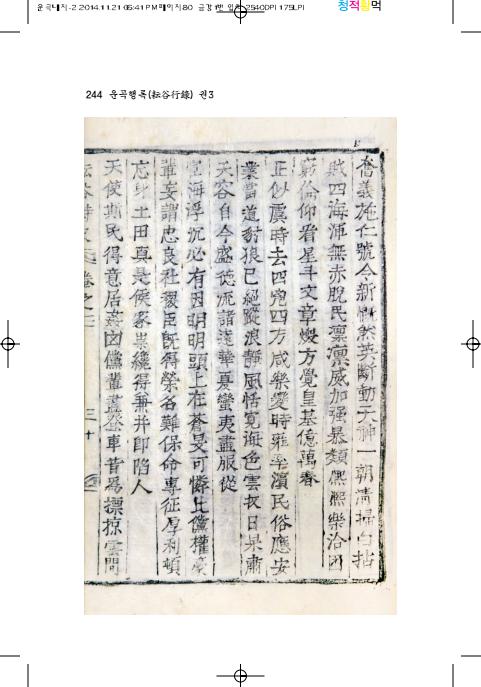 운곡내지-2 2014.11.21 05:41 PM 페이지80 2540DPI 175LPI
청적황먹
244 운곡행록(耘谷行錄) 권3
奮義施仁號令新慨然英斷動天神一朝淸掃白拈
賊四海渾無赤脫民凜凜威加强暴類熙熙樂洽困
窮倫仰看星斗文章煥方覺皇基億萬春
正似虞時去四兇四方咸樂變時雍率濱民俗應安
業當道豺狼已絕蹤浪靜風恬寬海色雲收日杲肅
天容自今盛德流諸遠華夏蠻夷盡服從
宦海浮沉必有因明明頭上在蒼旻可憐比儻權豪
輩妄謂忠良社稷臣旣得榮名難保命專征厚利頓
忘身土田眞是候家祟纔得兼幷卽陷人
天使斯民得意居姦凶儻輩盡登車昔爲摽掠雲間